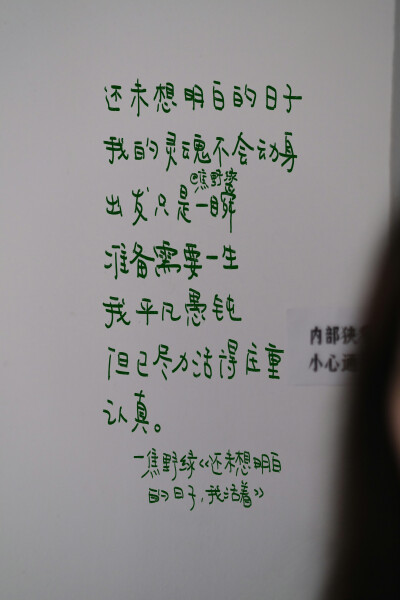 还未想明白的日子
我的灵魂不会动身
@焦野绿
出发只是一瞬
准备需要一生
我平凡愚钝
但已尽力活得庄重
认真。
—焦野绿《还未想明白
的日子,我活着》
内部狭
小心通